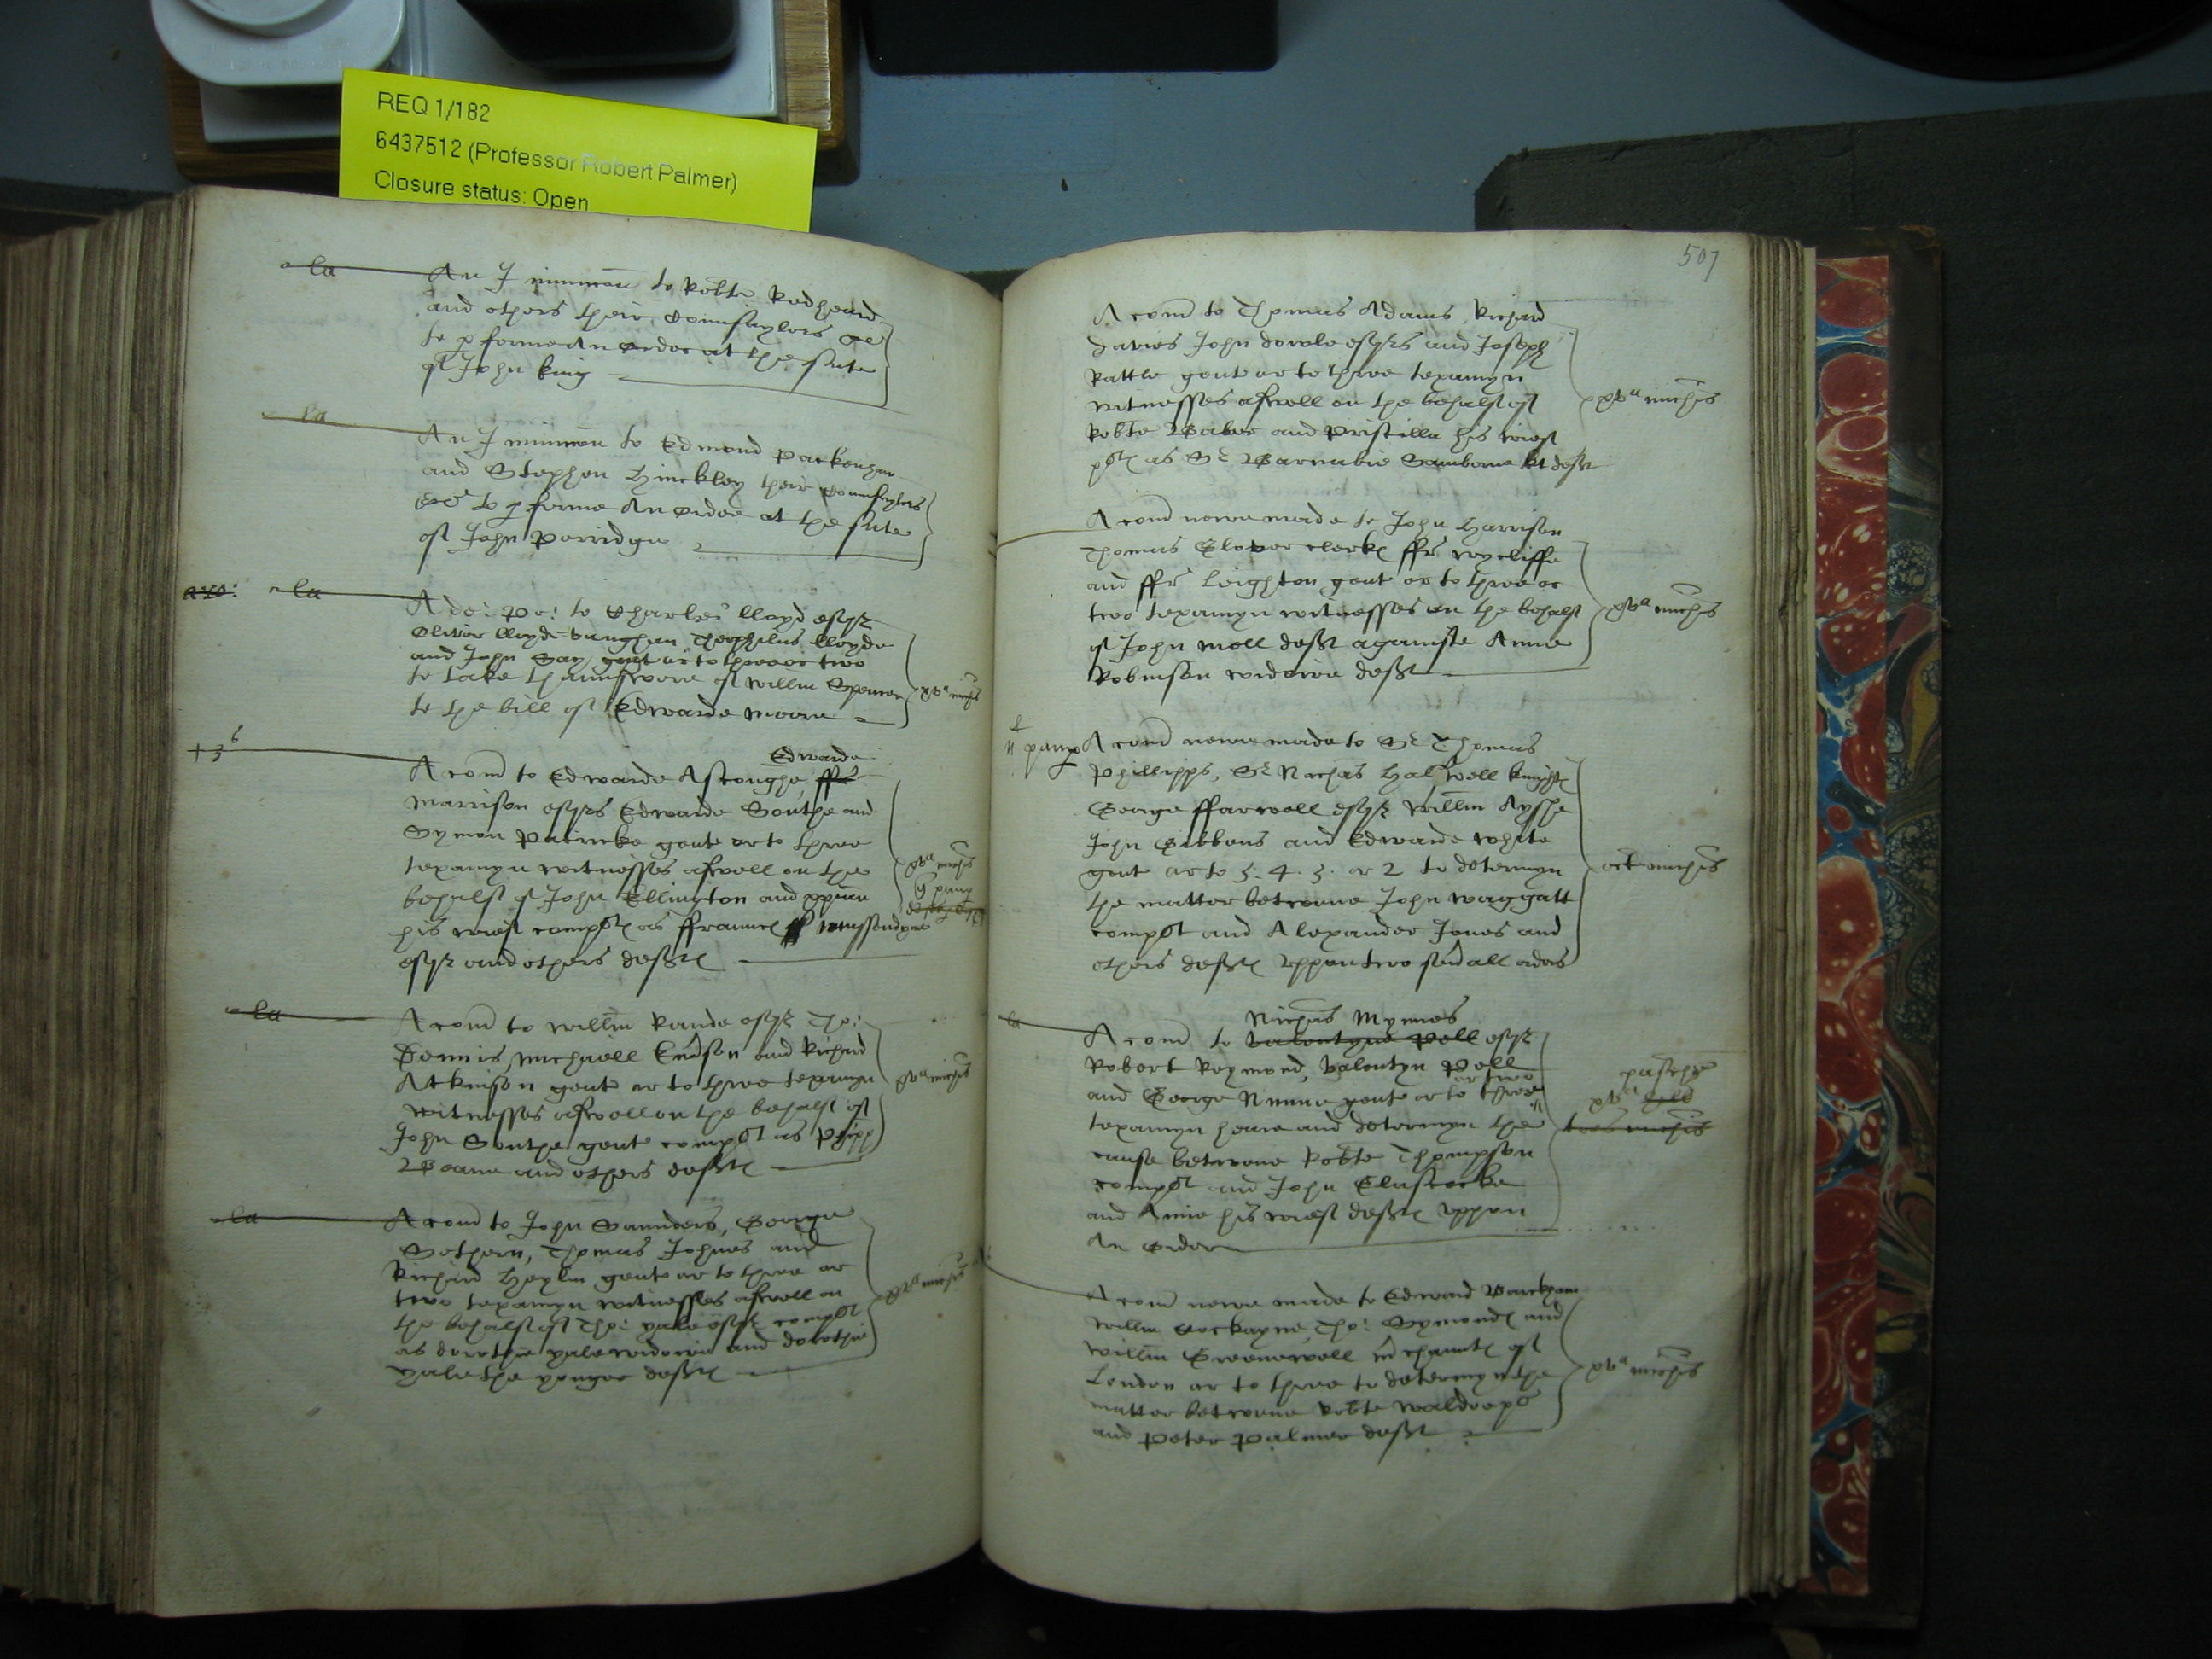 REQ 1/182
6437512 (Professor Robert Palmer)
Closure status: Open
la
An Iniunccon to Robte Redhead
and others their Counsaylors &c
to pforme An order at the sute
of John King
la
An Iniunccon to Edmond Packenham
and Stephen Hinckley their Counsaylors
&c to pforme An order at the sute
of John Porridge
la
A de: po: to Charles lloyd esqr
Oliver lloyde vaughan Theophilus lloyde
and John Gay gent or to three or two
to take thaunswere of Willm Spencer
to the bill of Edwarde Moore
xva michis
+ 3 6
Edwarde
A com to Edwarde Ascoughe
Marrison esqrs Edwarde Southe and
Symon Patricke gent or to three
texamyn witnesses aswell on the
behalf of John Ellington and
his wief complt as Fraunc Mussendyne
esqr and others deft
xva michis
la
A com to Willm Rande esqr Tho:
Dennis, Michaell and Richard
Atkinson gent or to three texamyn
witnesses aswell on the behalf of
John Southe gent complt as Phipp
and others deft
xva michis
la
A com to John Saunders, George
Sothern, Thomas Johnes and
Richard Heylin gent or to three or
two texamyn witnesses aswell on
the behalf of Tho: yale esqr complt
as dorothie yale widowe and dorothie
yale the yonger deft
xva michis
507
A com to Thomas Adams, Richard
Davies John dowle esqrs and Joseph
Rattle gent or to three texamyn
witnesses aswell on the behalf of
Robte Baber and Priscilla his wief
plt as Sr Barnabie Samborne kt deft
xva michis
A com newe made to John Harrison
Thomas Glover clerk ffr wycliffe
and ffr Leighton gent or to three or
two texamyn witnesses on the behalf
of John Moll deft againste Anne
Robinson widowe deft
xva michis
A com newe made to Sr Thomas
Phillipps, Sr Nichas Halswell knight
George ffarwell esqr Willm Aysshe
John Gibbons and Edwarde white
gent or to 5. 4. 3. or 2 to determyn
the matter betwene John Waggatt
complt and Alexander Jones and
others deft uppon two sevall orders
oct michis
la
Nichas Mynnes
A com to Valentyne Pell esqr
Robert Reymond, Valentyn Pell
or two
and George Nunne gent or to three
texamyn heare and determyn the
cause betwene Robte Thompson
complt and John Elastocke
and Anne his wief deft uppon
An order
pasche
xva hill
tres michis
A com newe made to Edward Barkham
Willm Cockayne, Tho: Symonds and
Willm Greenewell mchaunt of
London or to three to determyn the
matter betwene Robte Waldro plt
and Peter Palmer deft
xva michis